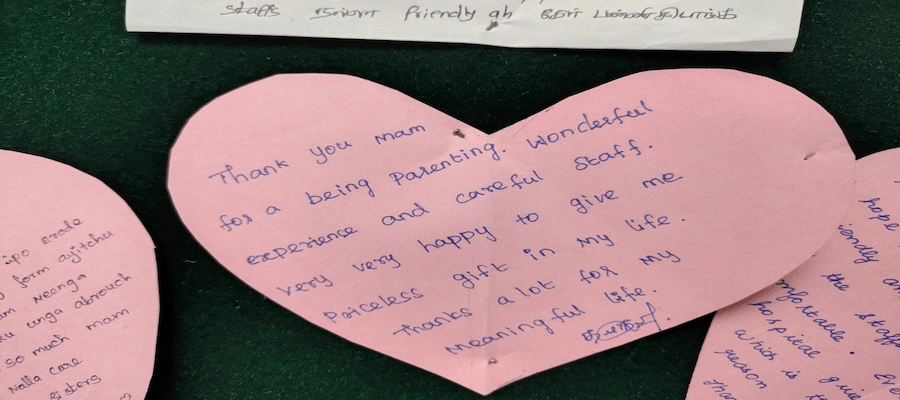 staffs நல்லா friendly ah
Thank you mam
for a being Parenting. Wonderful
experience and careful staff.
very very happy to give me
Priceless gift in my life.
Thanks a lot for my
meaningful life.
ipo erade
form ayitchu
Neenga
unga abrouch
so much mam
Nalla care
sisters
hope
friendly an
the staff
comfortable. Eve
hospital
which is give
reason
than